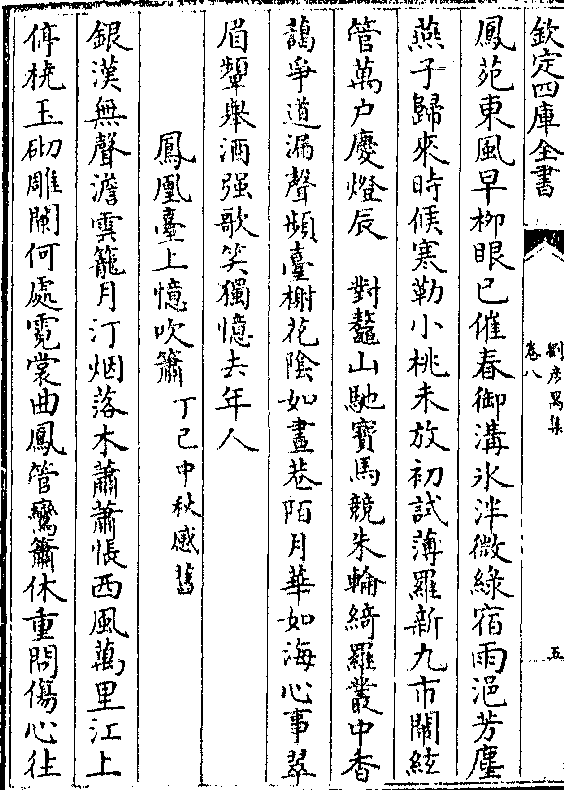 欽定四庫全書
劉彥昺集
卷八
五
鳳苑東風早柳眼已催春御溝氷泮微綠宿雨浥芳塵
燕子歸來時候寒勒小桃未放初試薄羅新九市鬧絃
管萬户慶燈辰　對鼇山馳寳馬競朱輪綺羅叢中香
藹爭道漏聲頻臺榭花陰如晝巷陌月華如海心事翠
眉顰舉酒强歌笑獨憶去年人
鳳凰臺上憶吹簫丁巳中秋感舊
銀漢無聲澹雲籠月汀烟落木蕭蕭悵西風萬里江上
停橈玉砌雕闌何處霓裳曲鳳管鸞簫休重問傷心往